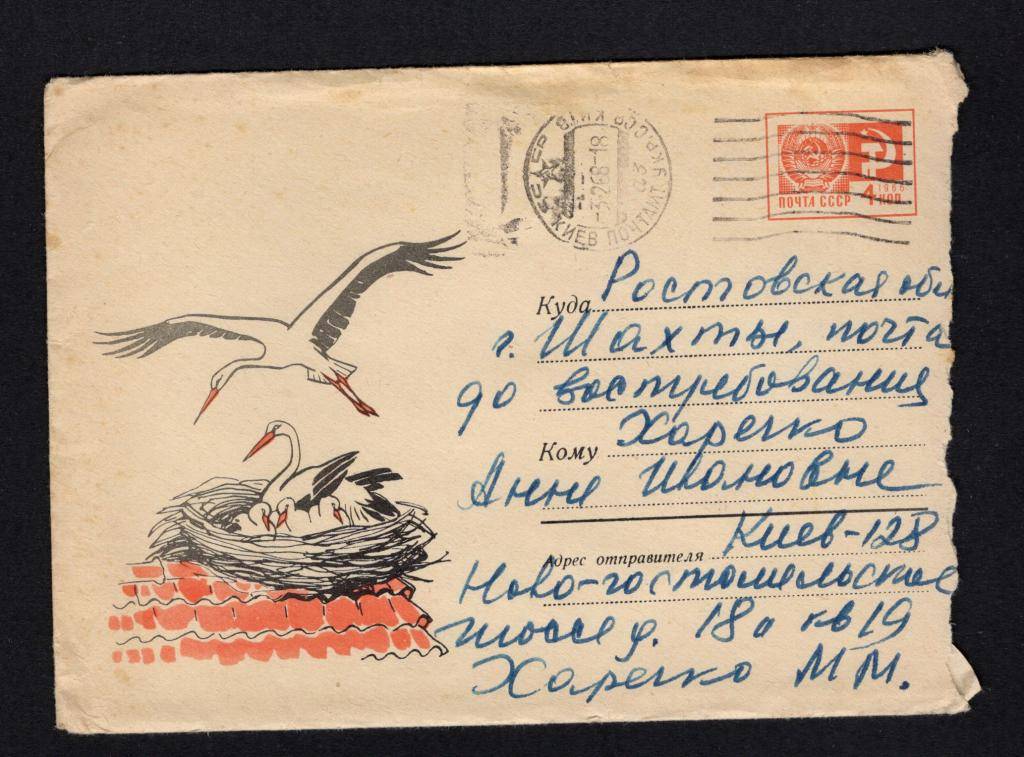 КИЇВ
УКР.ССР
-3268-18
03
КИЕВ ПОЧТАМТ
1966
4 КОП
ПОЧТА СССР
Куда Ростовская обл
г. Шахты, почта
до востребования
Кому Харечко
Анне Ивановне
Адрес отправителя Киев-128
Ново-гостомельское
шоссе д. 18а кв 19
Харечко М М.